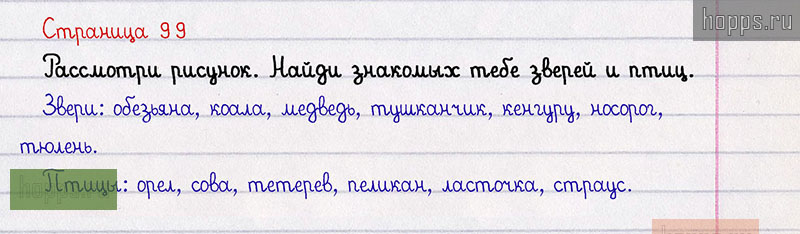 Страница 99
hopps.ru
Рассмотри рисунок. Найди знакомых тебе зверей и птиц.
Звери: обезьяна, коала, медведь, тушканчик, кенгуру, носорог,
тюлень.
Птицы: орел, сова, тетерев, пеликан, ласточка, страус.